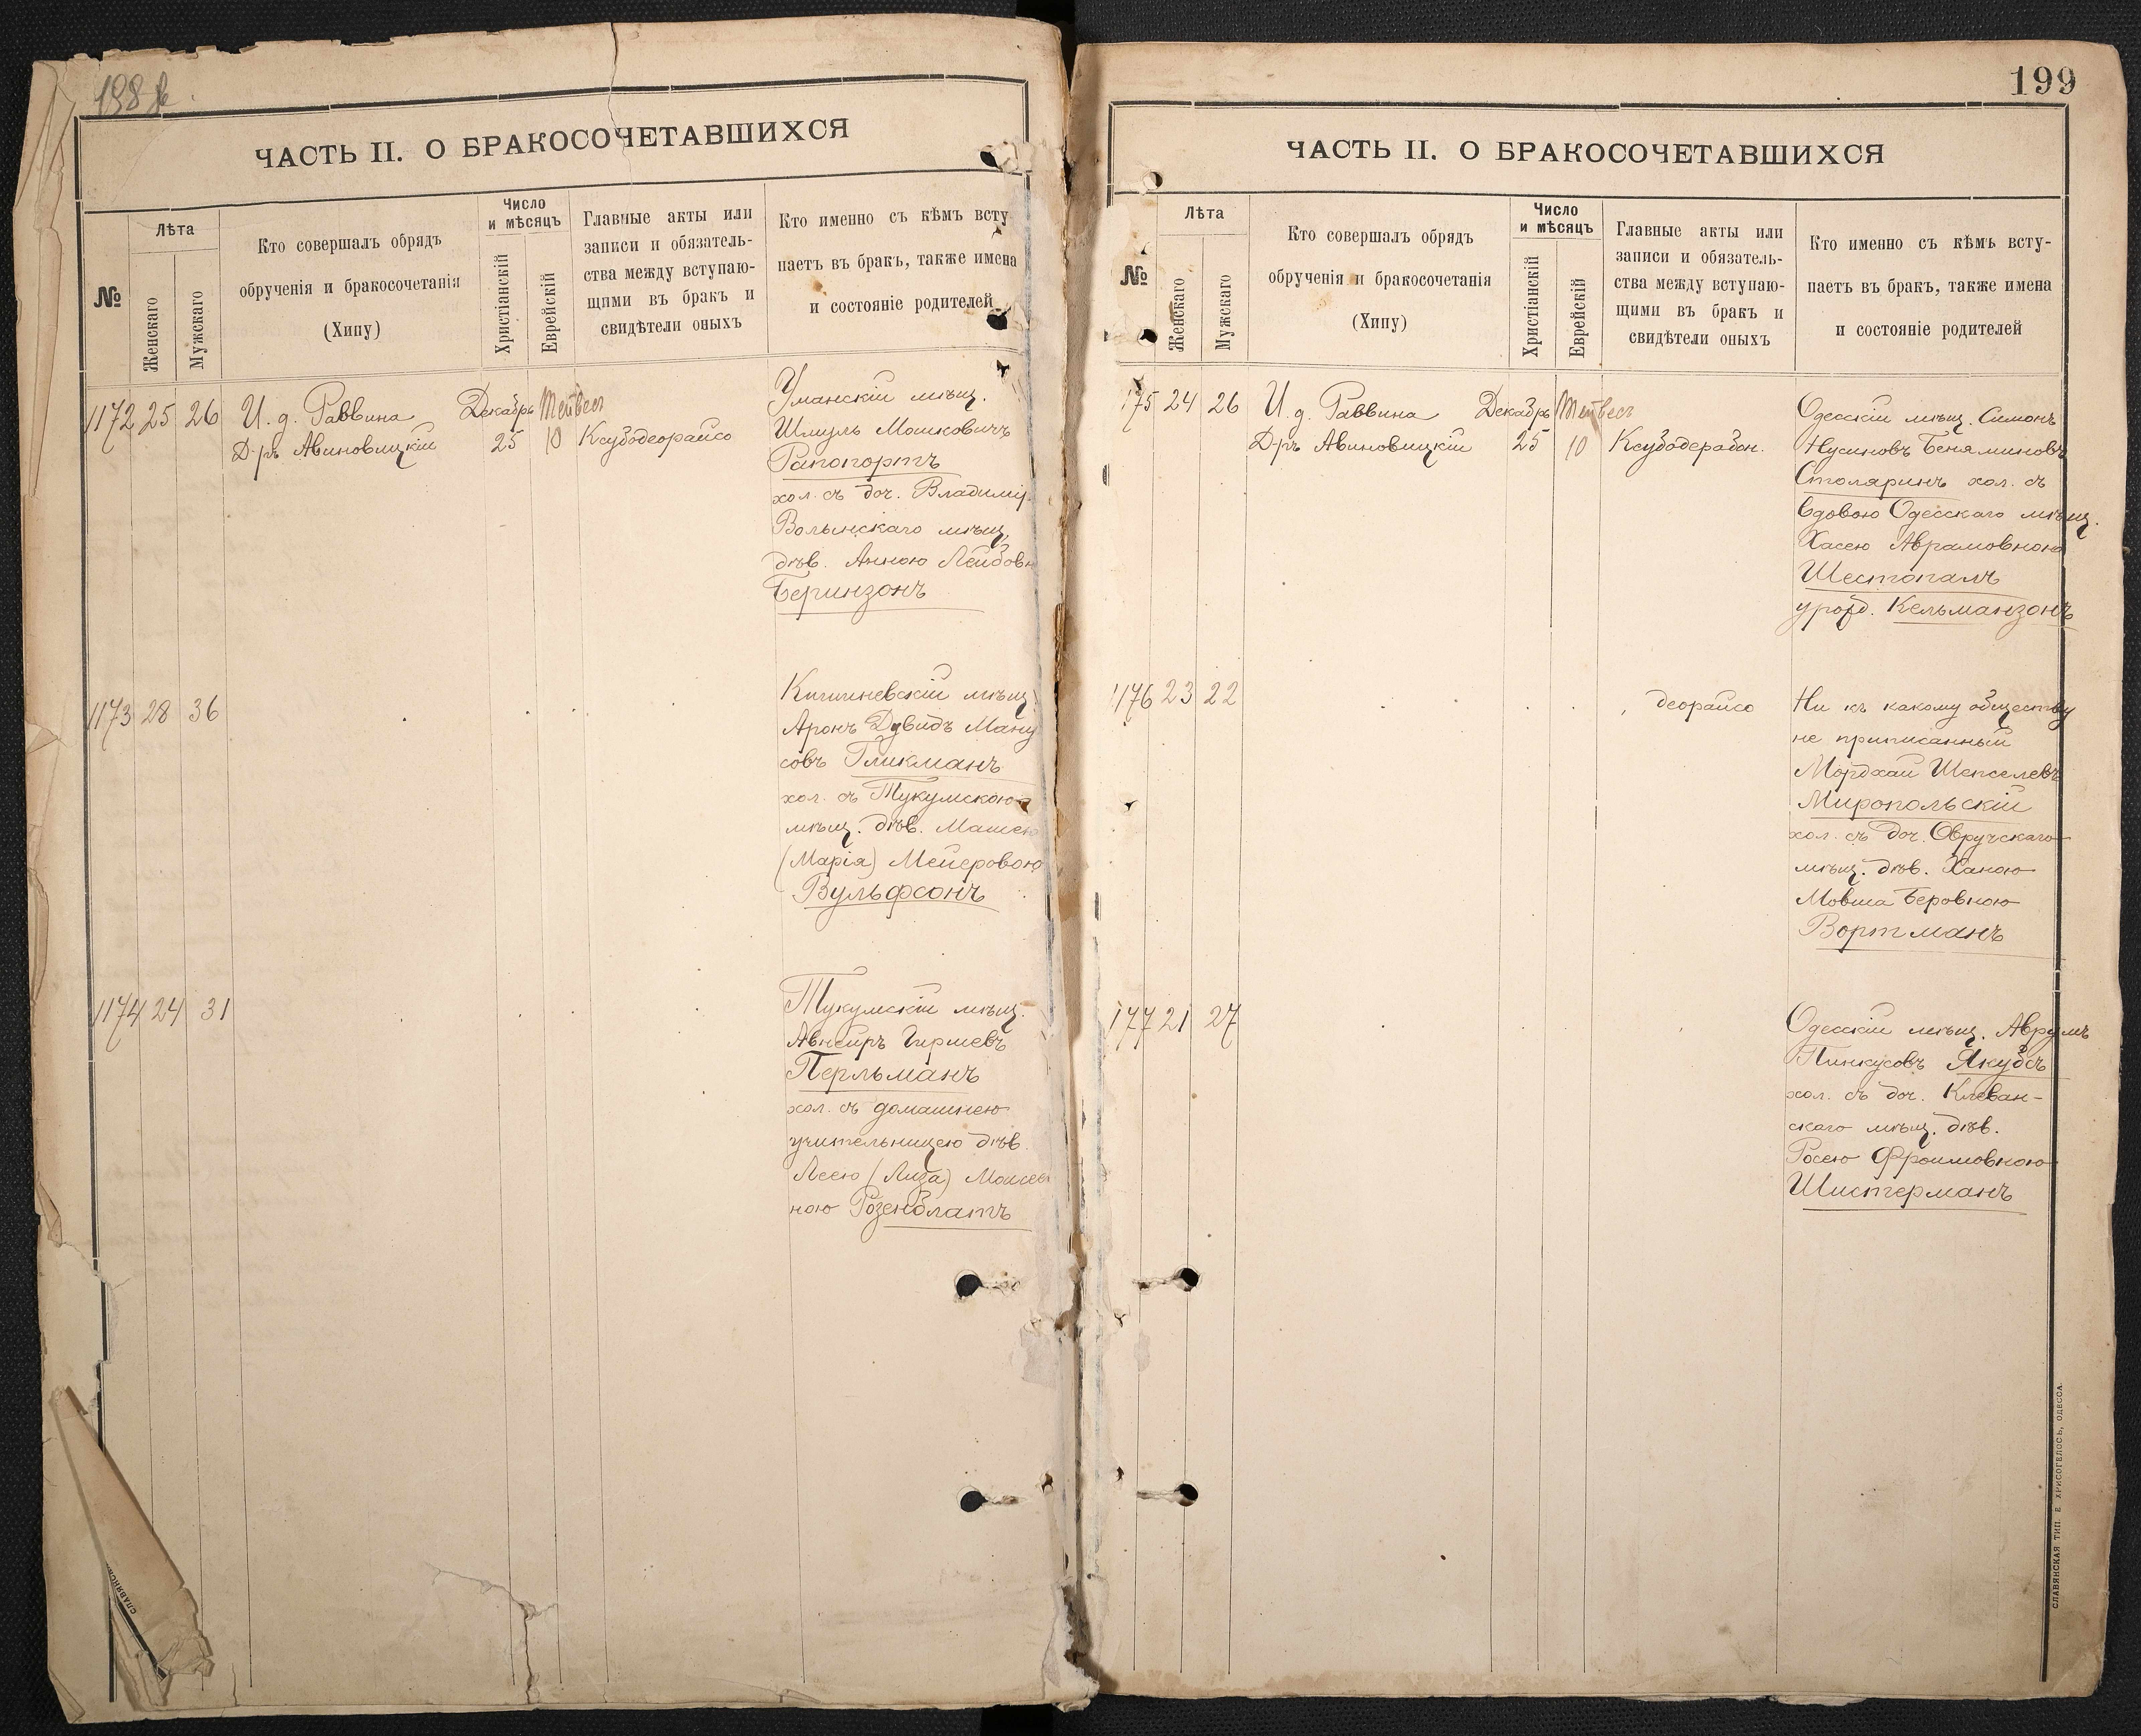 ЧАСТЬ II. О БРАКОСОЧЕТАВШИХСЯ
№
Лѣта
Женскаго
Мужскаго
Кто совершалъ обрядъ
обрученія и бракосочетанія
(Хипу)
Число
и мѣсяцъ
Христіанскій
Еврейскій
Главные акты или
записи и обязатель-
ства между вступаю-
щими въ бракъ и
свидѣтели оныхъ
Кто именно съ кѣмъ всту
паетъ въ бракъ, также имена
и состояніе родителей
1172 25 26 И. д. Раввина Декабрь Тейвесъ
Д-ръ Авиновицкій 25 10 Ксубодеорайсо
Уманскій мѣщ.
Шмуль Мошковичъ
Рапопортъ
хол. съ доч. Владимір
Волынскаго мѣщ.
дѣв. Анною Лейбовн
Беринзонъ
1173 28 36
Кишиневскій мѣщ
Аронъ Дувидъ Ману
совъ Гликманъ
хол. съ Тукумскою
мѣщ. дѣв. Машею
(Марія) Мейеровою
Вульфсонъ
1174 24 31
Тукумскій мѣщ.
Авнеиръ Гиршевъ
Перльманъ
хол. съ домашнею
учительницею дѣв.
Леею (Лиза) Моисее
ною Розенблатъ
199
ЧАСТЬ II. О БРАКОСОЧЕТАВШИХСЯ
№
Лѣта
Женскаго
Мужскаго
Кто совершалъ обрядъ
обрученія и бракосочетанія
(Хипу)
Число
и мѣсяцъ
Христіанскій
Еврейскій
Главные акты или
записи и обязатель-
ства между вступаю-
щими въ бракъ и
свидѣтели оныхъ
Кто именно съ кѣмъ всту-
паетъ въ бракъ, также имена
и состояніе родителей
175 24 26 И. д. Раввина Декабрь Тейвесъ
Д-ръ Авиновицкій 25 10 Ксубодерабон.
Одесскій мѣщ. Симонъ
Нусиновъ Беняминовъ
Столяринъ хол. съ
вдовою Одесскаго мѣщ.
Хасею Аврамовною
Шестопалъ
урожд. Кельманзонъ
1176 23 22 деорайсо
Ни къ какому обществу
не приписанный
Мордхай Шепселевъ
Миропольскій
хол. съ доч. Овручскаго
мѣщ. дѣв. Ханою
Мовша Беровною
Вортманъ
177 21 27
Одесскій мѣщ. Аврумъ
Пинкусовъ Якубсъ
хол. съ доч. Клеван-
скаго мѣщ. дѣв.
Росею Фроимовною
Шистерманъ
СЛАВЯНСКАЯ ТИП. Е. ХРИСОГЕЛОСЪ, ОДЕССА.